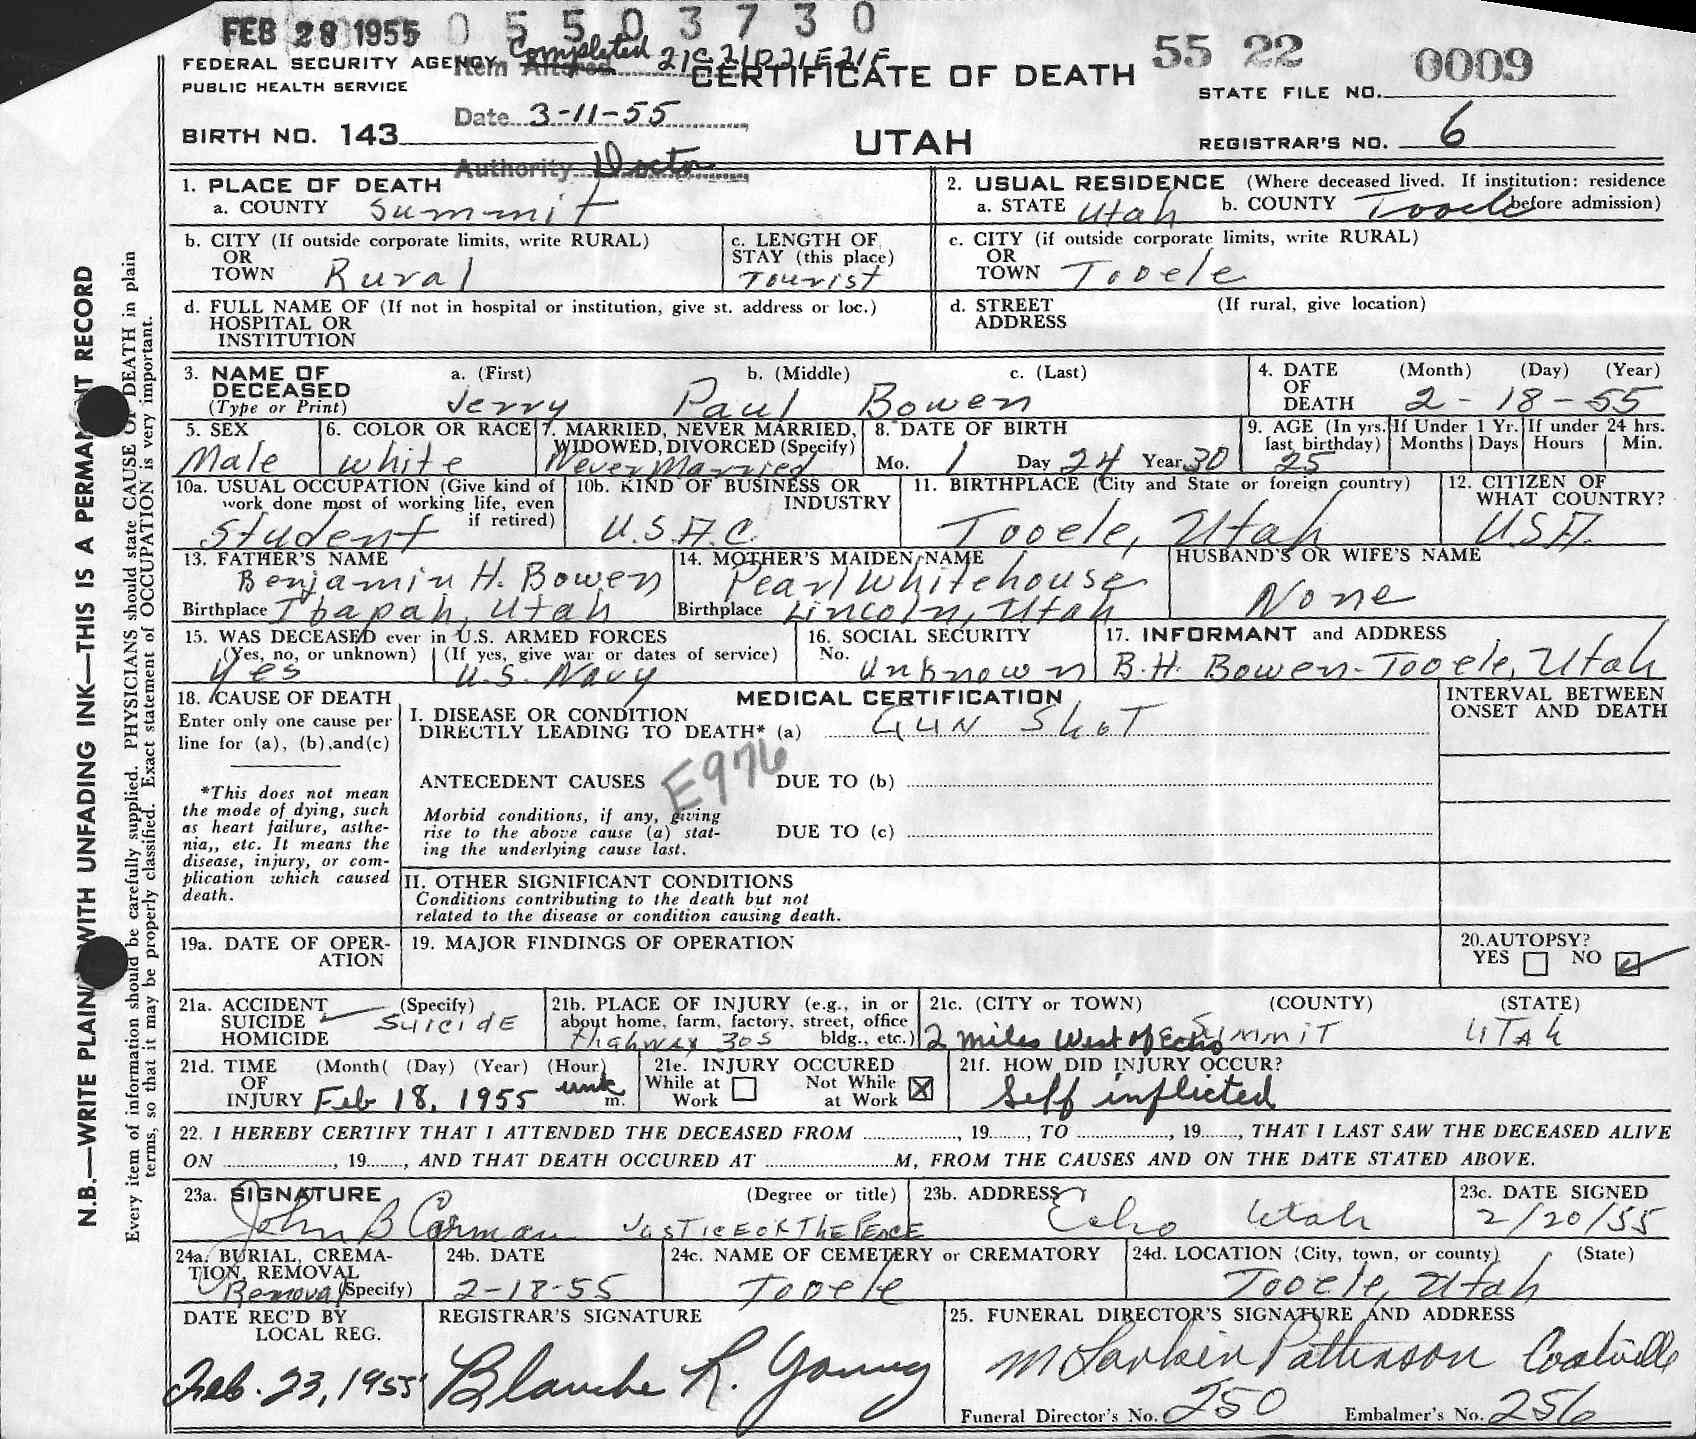 FEB 28 1955 0 5 5 0 3 7 3 0
FEDERAL SECURITY AGENCY
PUBLIC HEALTH SERVICE
Item Altered Completed 21C 21D 21E 21F
CERTIFICATE OF DEATH
55 22 0009
STATE FILE NO.
Date 3-11-55
BIRTH NO. 143
UTAH
REGISTRAR'S NO. 6
Authority Doctor
1. PLACE OF DEATH
a. COUNTY Summit
2. USUAL RESIDENCE (Where deceased lived. If institution: residence before admission)
a. STATE Utah b. COUNTY Tooele
b. CITY (If outside corporate limits, write RURAL)
OR
TOWN Rural
c. LENGTH OF
STAY (this place)
Tourist
c. CITY (if outside corporate limits, write RURAL)
OR
TOWN Tooele
d. FULL NAME OF (If not in hospital or institution, give st. address or loc.)
HOSPITAL OR
INSTITUTION
d. STREET (If rural, give location)
ADDRESS
3. NAME OF DECEASED
(Type or Print)
a. (First) b. (Middle) c. (Last)
Jerry Paul Bowen
4. DATE OF DEATH (Month) (Day) (Year)
2-18-55
5. SEX
Male
6. COLOR OR RACE
White
7. MARRIED, NEVER MARRIED,
WIDOWED, DIVORCED (Specify)
Never Married
8. DATE OF BIRTH
Mo. 1 Day 24 Year 30
9. AGE (In yrs. last birthday)
25
If Under 1 Yr.
Months Days
If under 24 hrs.
Hours Min.
10a. USUAL OCCUPATION (Give kind of
work done most of working life, even
if retired)
Student
10b. KIND OF BUSINESS OR
INDUSTRY
U.S.A.C.
11. BIRTHPLACE (City and State or foreign country)
Tooele, Utah
12. CITIZEN OF
WHAT COUNTRY?
USA.
13. FATHER'S NAME
Benjamin H. Bowen
Birthplace Ibapah, Utah
14. MOTHER'S MAIDEN NAME
Pearl Whitehouse
Birthplace Lincoln, Utah
HUSBAND'S OR WIFE'S NAME
None
15. WAS DECEASED ever in U.S. ARMED FORCES
(Yes, no, or unknown) (If yes, give war or dates of service)
Yes U.S. Navy
16. SOCIAL SECURITY
No. Unknown
17. INFORMANT and ADDRESS
B.H. Bowen-Tooele, Utah
18. CAUSE OF DEATH
Enter only one cause per
line for (a), (b), and (c)
*This does not mean
the mode of dying, such
as heart failure, asthe-
nia,, etc. It means the
disease, injury, or com-
plication which caused
death.
MEDICAL CERTIFICATION
I. DISEASE OR CONDITION
DIRECTLY LEADING TO DEATH* (a) GUN SHOT
ANTECEDENT CAUSES E976 DUE TO (b)
Morbid conditions, if any, giving
rise to the above cause (a) stat-
ing the underlying cause last.
DUE TO (c)
II. OTHER SIGNIFICANT CONDITIONS
Conditions contributing to the death but not
related to the disease or condition causing death.
INTERVAL BETWEEN
ONSET AND DEATH
19a. DATE OF OPER-
ATION
19. MAJOR FINDINGS OF OPERATION
20. AUTOPSY?
YES NO
21a. ACCIDENT (Specify)
SUICIDE SUICIDE
HOMICIDE
21b. PLACE OF INJURY (e.g., in or
about home, farm, factory, street, office
bldg., etc.)
Highway 30S
21c. (CITY or TOWN) (COUNTY) (STATE)
2 miles West of Echo Summit UTAH
21d. TIME (Month( (Day) (Year) (Hour)
OF
INJURY Feb 18, 1955 unk m.
21e. INJURY OCCURED
While at Work Not While at Work
21f. HOW DID INJURY OCCUR?
Self inflicted
22. I HEREBY CERTIFY THAT I ATTENDED THE DECEASED FROM , 19 , TO , 19 , THAT I LAST SAW THE DECEASED ALIVE
ON , 19 , AND THAT DEATH OCCURED AT M, FROM THE CAUSES AND ON THE DATE STATED ABOVE.
23a. SIGNATURE (Degree or title)
John B Carman JUSTICE OF THE PEACE
23b. ADDRESS
Echo Utah
23c. DATE SIGNED
2/20/55
24a. BURIAL, CREMA-
TION, REMOVAL
(Specify) Removal
24b. DATE
2-18-55
24c. NAME OF CEMETERY or CREMATORY
Tooele
24d. LOCATION (City, town, or county) (State)
Tooele, Utah
DATE REC'D BY
LOCAL REG.
Feb. 23, 1955
REGISTRAR'S SIGNATURE
Blanche R. Young
25. FUNERAL DIRECTOR'S SIGNATURE AND ADDRESS
M Larkin Patterson Coalville
Funeral Director's No. 250 Embalmer's No. 256
N.B.—WRITE PLAINLY WITH UNFADING INK—THIS IS A PERMANENT RECORD
Every item of information should be carefully supplied. PHYSICIANS should state CAUSE OF DEATH in plain
terms, so that it may be properly classified. Exact statement of OCCUPATION is very important.